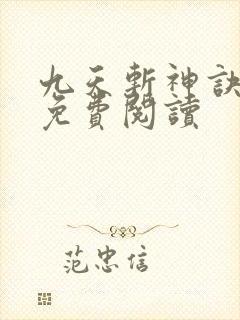 九天斬神訣
免費閱讀
范忠信